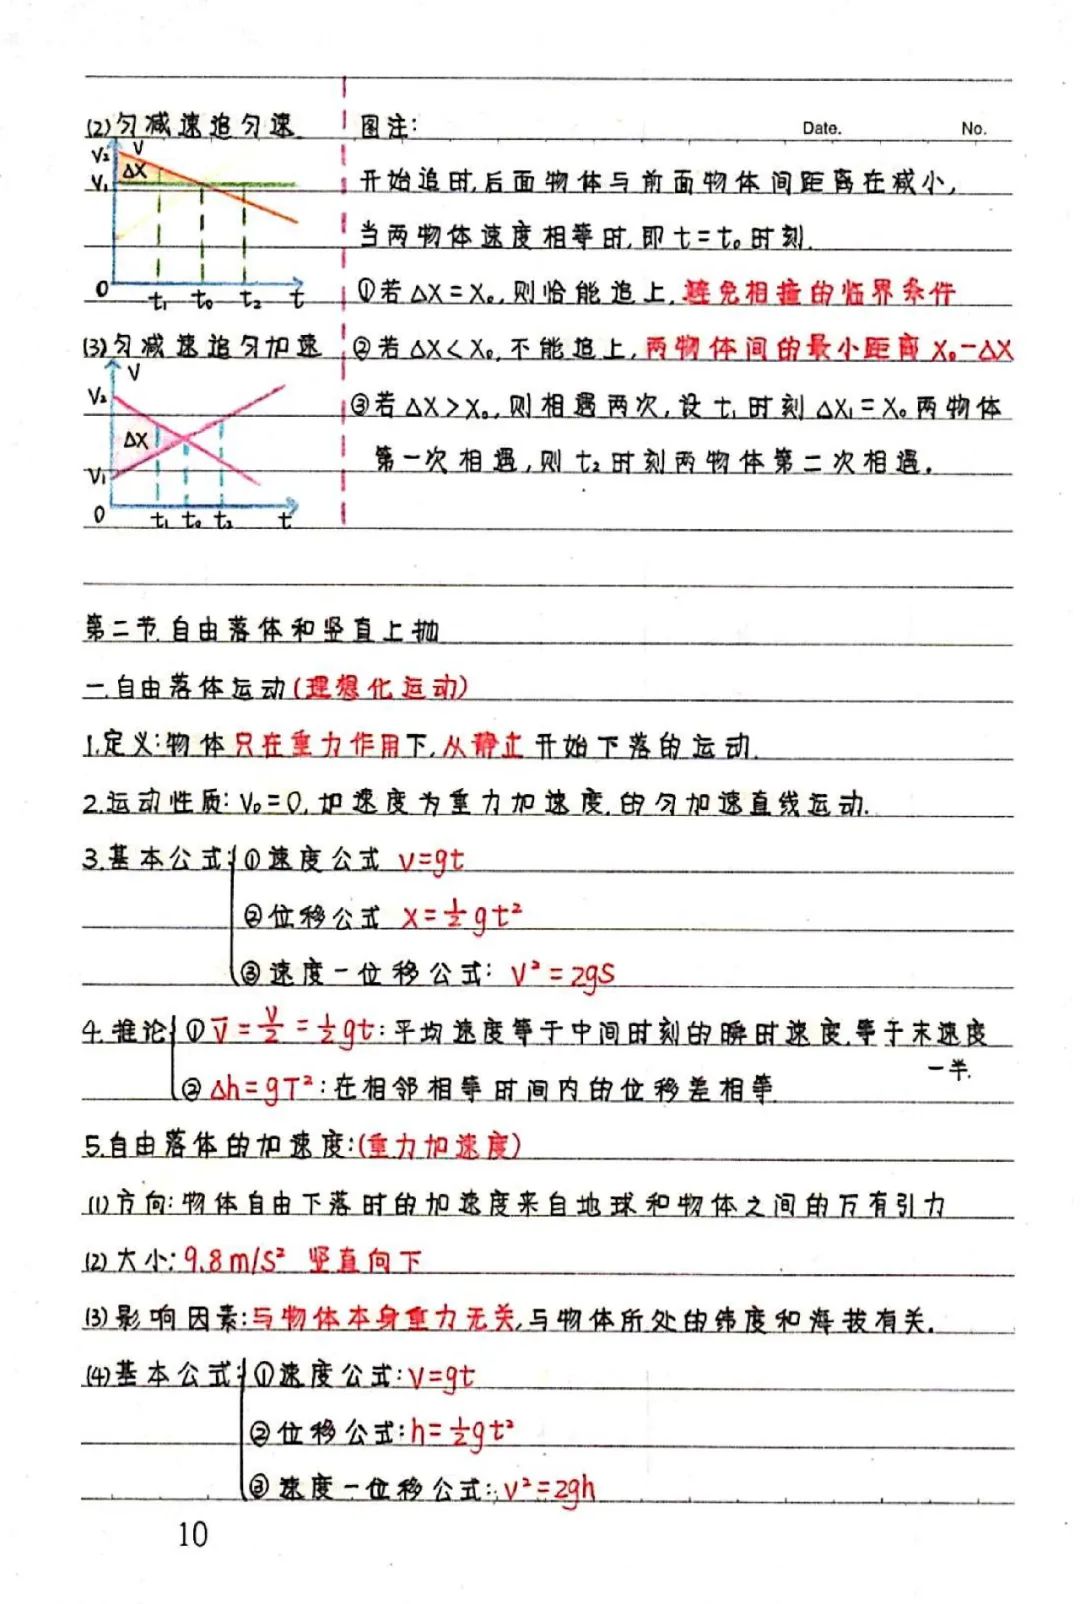 (2)匀减速追匀速
V
V₂
ΔX
V₁
0 t₁ t₀ t₂ t
(3)匀减速追匀加速
V
V₂
ΔX
V₁
0 t₁ t₀ t₂ t
图注:
Date. No.
开始追时,后面物体与前面物体间距离在减小,
当两物体速度相等时,即t=t₀时刻.
①若ΔX=X₀,则恰能追上,避免相撞的临界条件
②若ΔX<X₀,不能追上,两物体间的最小距离X₀-ΔX
③若ΔX>X₀,则相遇两次,设t₁时刻ΔX₁=X₀两物体
第一次相遇,则t₂时刻两物体第二次相遇.
第二节.自由落体和竖直上抛
一.自由落体运动(理想化运动)
1.定义:物体只在重力作用下,从静止开始下落的运动.
2.运动性质:V₀=0,加速度为重力加速度.的匀加速直线运动.
3.基本公式{①速度公式 v=gt
②位移公式 x=½gt²
③速度-位移公式: V²=2gS
4.推论{①v̄=v/2=½gt:平均速度等于中间时刻的瞬时速度,等于末速度
一半.
②Δh=gT²:在相邻相等时间内的位移差相等
5.自由落体的加速度:(重力加速度)
(1)方向:物体自由下落时的加速度来自地球和物体之间的万有引力
(2)大小:9.8m/S² 竖直向下
(3)影响因素:与物体本身重力无关,与物体所处的纬度和海拔有关.
(4)基本公式{①速度公式:v=gt
②位移公式:h=½gt²
③速度-位移公式:v²=2gh
10